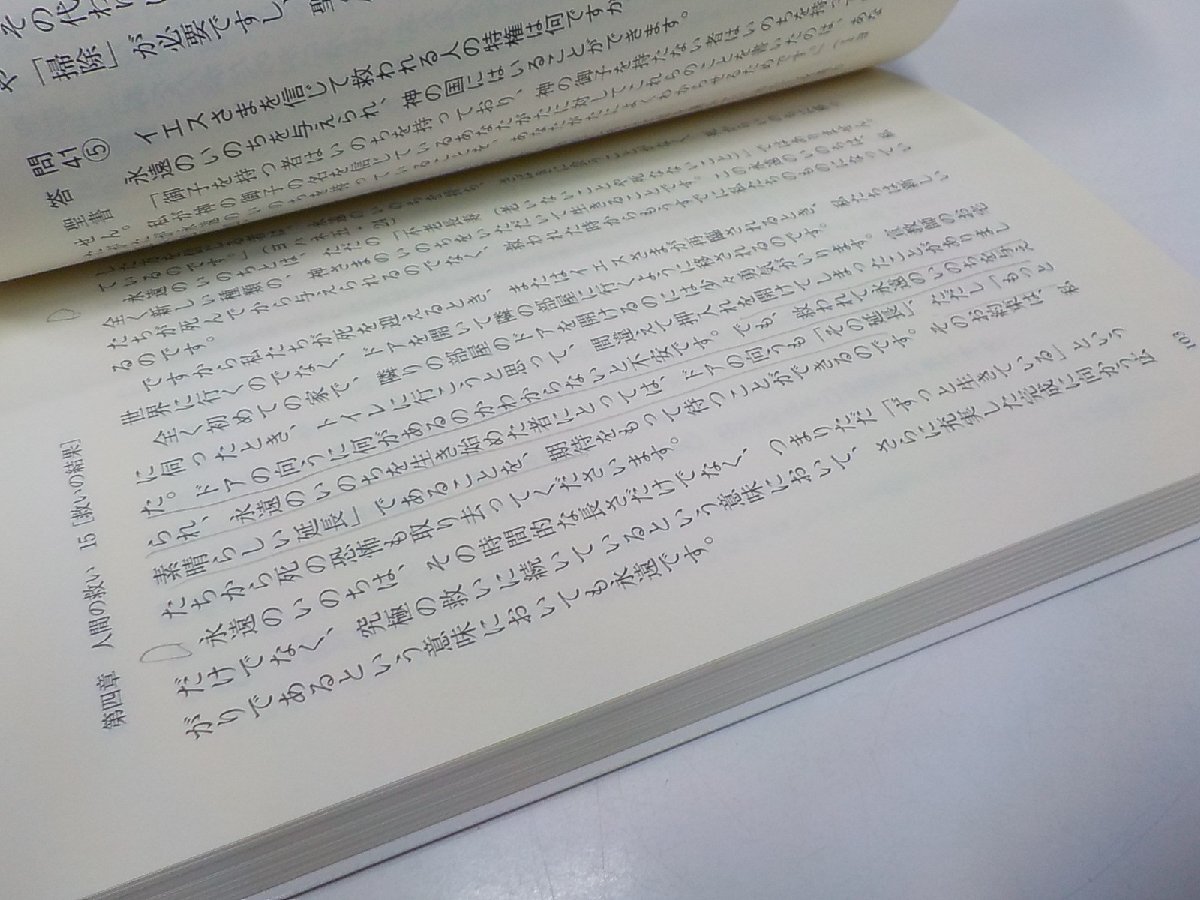 その代わりに
や「掃除」が必要ですし、聖
問41⑤ イエスさまを信じて救われる人の特権は何ですか
答 永遠のいのちを与えられ、神の国にはいることができます。
聖書 「御子を持つ者はいのちを持っており、神の御子を持たない者はいのちを持って
せん。私が神の御子の名を信じているあなたがたに対してこれらのことを書いたのは、あな
永遠のいのちとは、ただの「不老長寿（老いないことや死なないこと）」ではありません。
全く新しい種類の、神さまのいのちをいただいて生きることです。この永遠のいのちは、私
たちが死んでから与えられるのでなく、救われた時からもうすでに私たちのものになってい
るのです。
ですから私たちが死を迎えるとき、またはイエスさまが再臨されるとき、私たちは新しい
世界に行くのでなく、ドアを開いて隣の部屋に行くように移されるのです。
全く初めての家で、隣りの部屋のドアを開けるのには少々勇気がいります。宣教師のお宅
に伺ったとき、トイレに行こうと思って、間違えて押入れを開けてしまったことがありまし
た。ドアの向うに何があるのかわからないと不安です。でも、救われて永遠のいのちを与え
られ、永遠のいのちを生き始めた者にとっては、ドアの向うも「その延長」、ただし「もっと
素晴らしい延長」であることを、期待をもって待つことができるのです。そのお約束は、私
たちから死の恐怖も取り去ってくださいます。
永遠のいのちは、その時間的な長さだけでなく、つまりただ「ずっと生きている」という
だけでなく、究極の救いに続いているという意味において、さらに充実した完成に向かう広
がりであるという意味においても永遠です。
第四章 人間の救い 15［救いの結果］
103